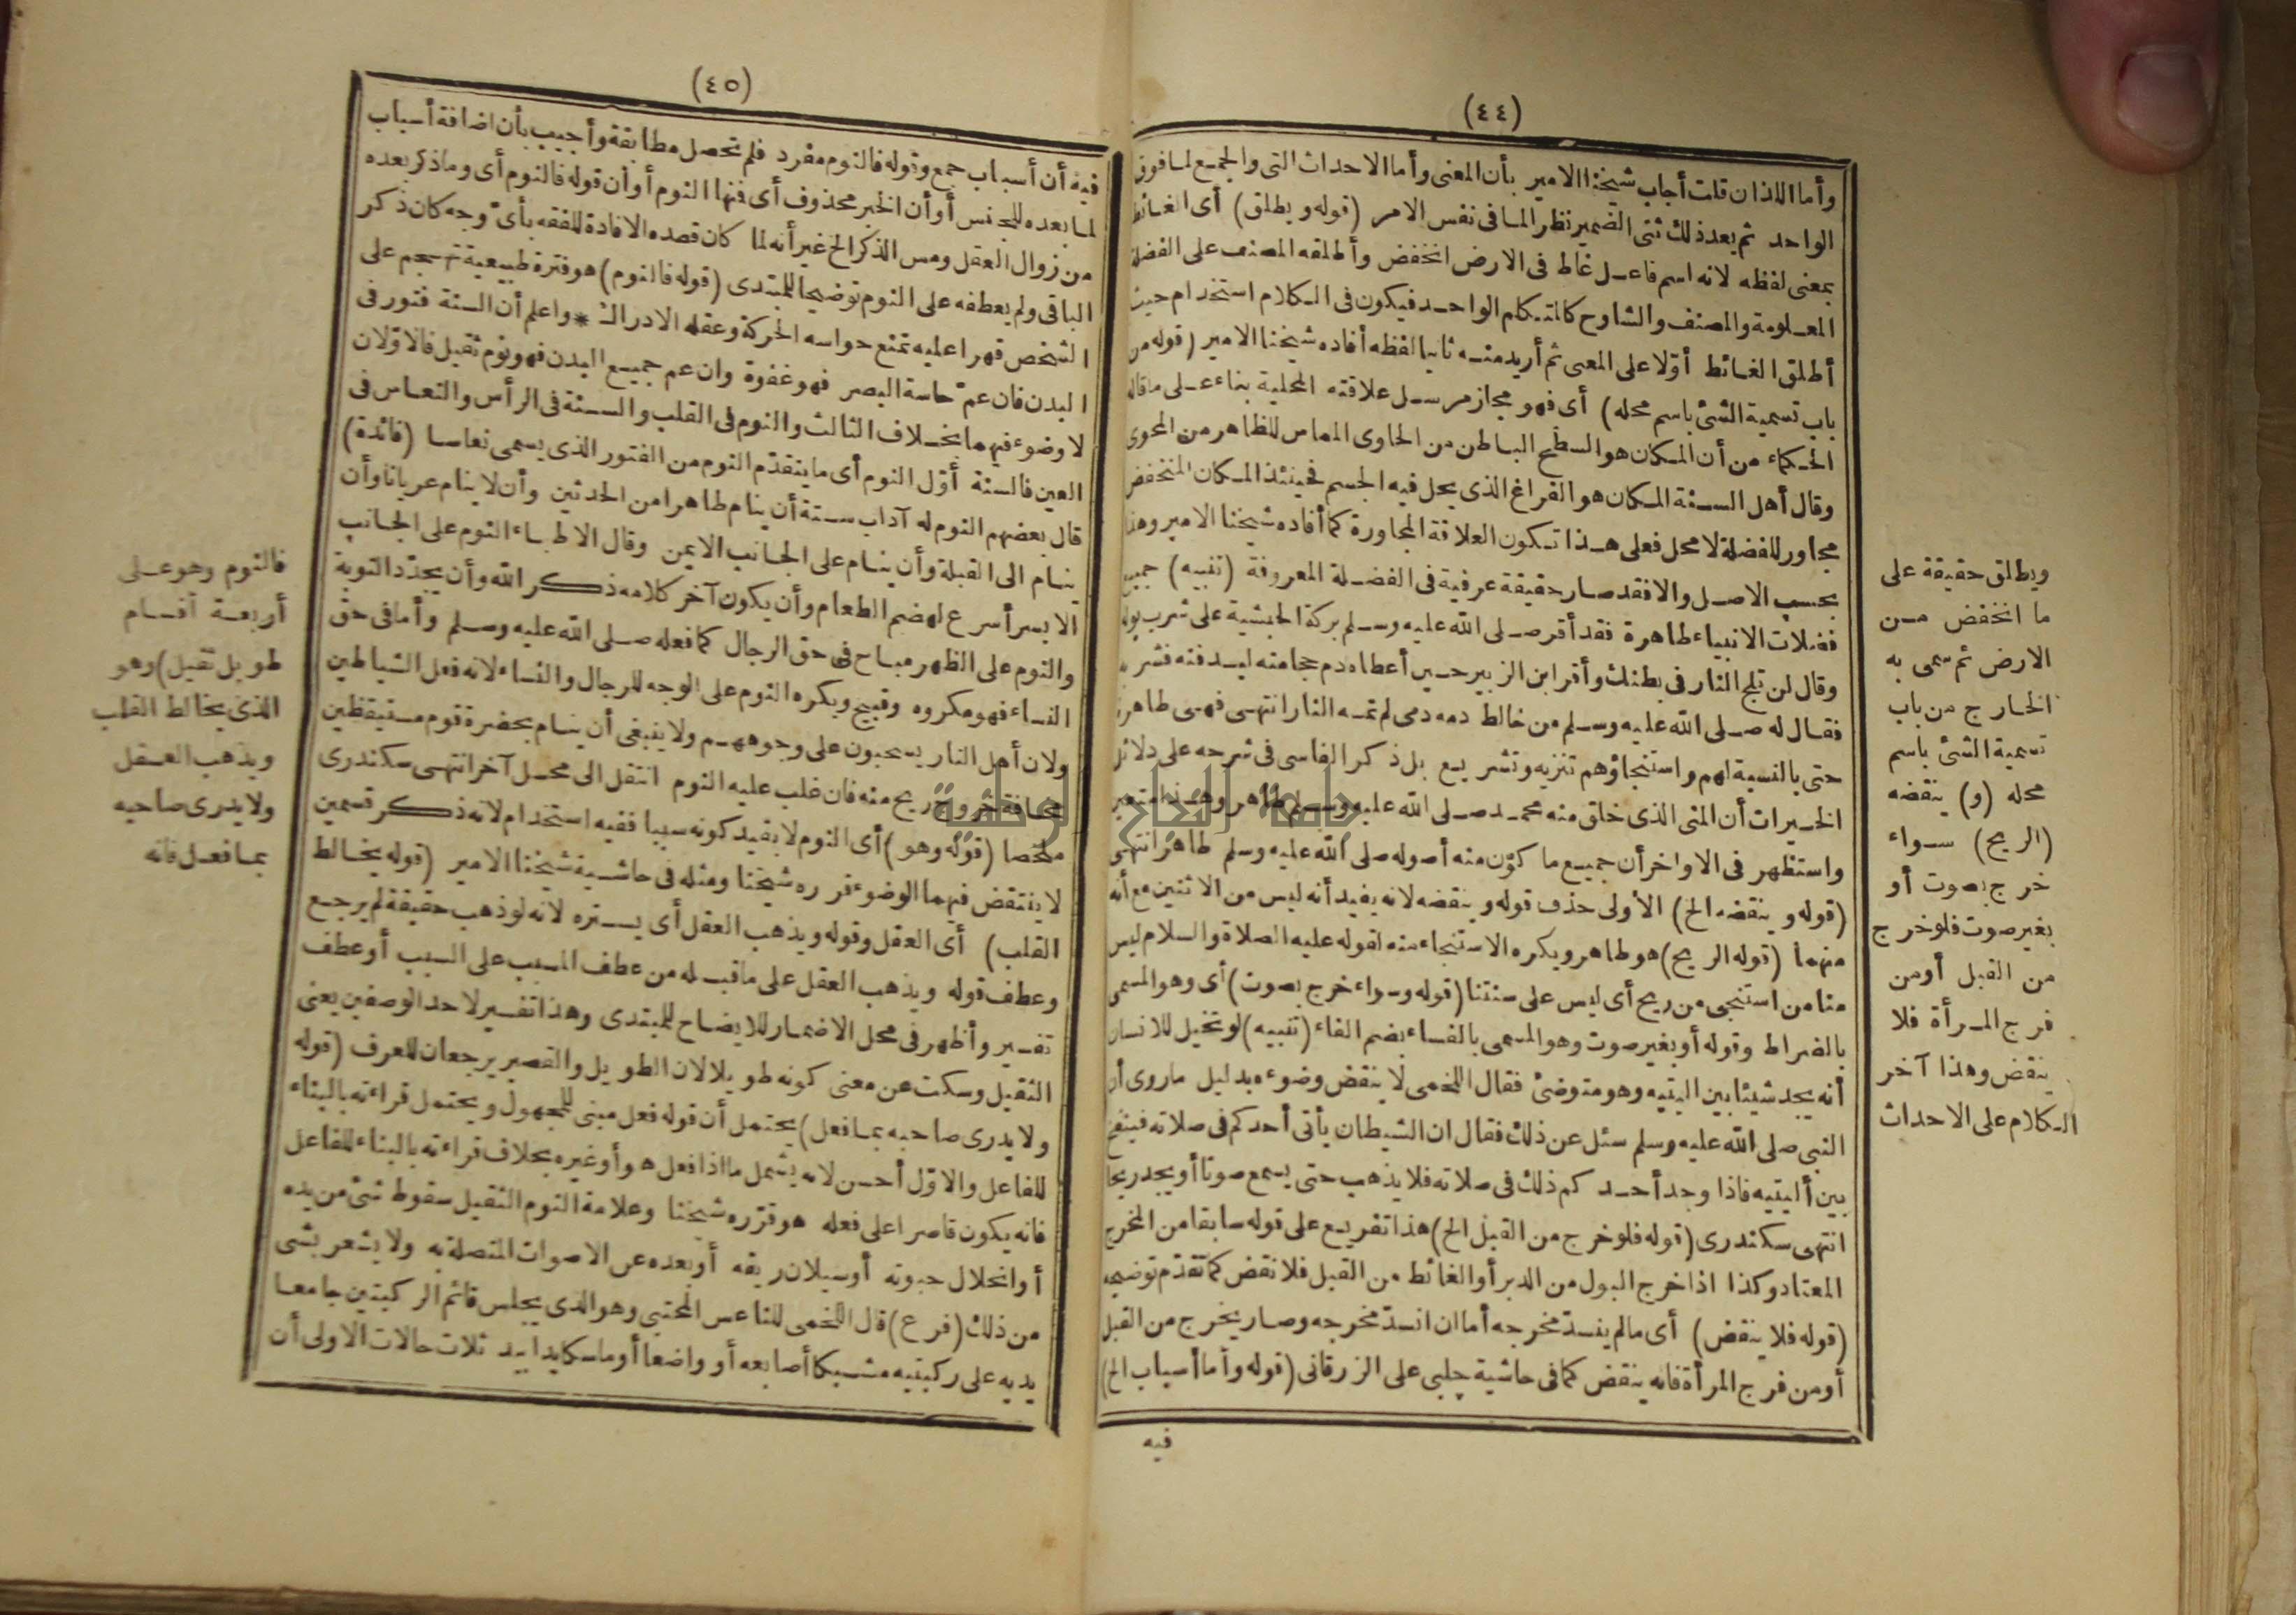 (٤٤)
وأما اللذان قلت أجاب شيخنا الامير بأن المعنى وأما الاحداث التى والجمع لما فوق
الواحد ثم بعد ذلك ثنى الضمير نظر المافى نفس الامر (قوله ويطلق) أى الغائط
بمعنى لفظه لانه اسم فاعل غاط فى الارض انخفض وأطلقه المصنف على الفضلة
المعلومة والمصنف والشارح كالمتكلم الواحد فيكون فى الكلام استخدام حيث
أطلق الغائط أوّلا على المعنى ثم أريد منه ثانيا لفظه أفاده شيخنا الامير (قوله من
باب تسمية الشئ باسم محله) أى فهو مجاز مرسل علاقته المحلية بناء على ما قاله
الحكماء من أن المكان هو السطح الباطن من الحاوى المماس للظاهر من المحوى
وقال أهل السنة المكان هو الفراغ الذى يحل فيه الجسم فحينئذ المكان المنخفض
مجاور للفضلة لا محل فعلى هذا تكون العلاقة المجاورة كما أفاده شيخنا الامير وهذا
بحسب الاصل والا فقد صار حقيقة عرفية فى الفضلة المعروفة (تنبيه) جميع
فضلات الانبياء طاهرة فقد أقر صلى الله عليه وسلم بركة الحبشية على شرب بوله
وقال لن تلج النار فى بطنك وأقر ابن الزبير حين أعطاه دم حجامته ليدفنه فشربه
فقال له صلى الله عليه وسلم من خالط دمه دمى لم تمسه النار انتهى فهى طاهرة
حتى بالنسبة لهم واستنجاؤهم تنزيه وتشريع بل ذكر الفاسى فى شرحه على دلائل
الخيرات أن المنى الذى خلق منه محمد صلى الله عليه وسلم طاهر وهذا متعين
واستظهر فى الاواخر أن جميع ما كوّن منه أصوله صلى الله عليه وسلم طاهر انتهى
(قوله وينقضه الخ) الأولى حذف قوله وينقضه لانه يفيد أنه ليس من الاثنين مع أنه
منهما (قوله الريح) هو طاهر ويكره الاستنجاء منه لقوله عليه الصلاة والسلام ليس
منا من استنجى من ريح أى ليس على سنتنا (قوله وسواء خرج بصوت) أى وهو المسمى
بالضراط وقوله أو بغير صوت وهو المسمى بالفساء بضم الفاء (تنبيه) لو تخيل للانسان
أنه يجد شيئا بين اليتيه وهو متوضئ فقال اللخمى لا ينقض وضوءه بدليل ما روى أن
النبى صلى الله عليه وسلم سئل عن ذلك فقال ان الشيطان يأتى أحدكم فى صلاته فينفخ
بين أليتيه فاذا وجد أحدكم ذلك فى صلاته فلا يذهب حتى يسمع صوتا أو يجد ريحا
انتهى سكندرى (قوله فلو خرج من القبل الخ) هذا تفريع على قوله سابقا من المخرج
المعتاد وكذا اذا خرج البول من الدبر أو الغائط من القبل فلا نقض كما تقدّم توضيحه
(قوله فلا ينقض) أى مالم ينسدّ مخرجه أما ان انسدّ مخرجه وصار يخرج من القبل
أو من فرج المرأة فانه ينقض كما فى حاشية چلبى على الزرقانى (قوله وأما أسباب الخ)
فيه
ويطلق حقيقة على
ما انخفض من
الارض ثم سمى به
الخارج من باب
تسمية الشئ باسم
محله (و) ينقضه
(الريح) سواء
خرج بصوت أو
بغير صوت فلو خرج
من القبل أو من
فرج المرأة فلا
ينقض وهذا آخر
الكلام على الاحداث
(٤٥)
فيه أن أسباب جمع وقوله فالنوم مفرد فلم تحصل مطابقة وأجيب بأن اضافة أسباب
لما بعده للجنس أو أن الخبر محذوف أى فمنها النوم أو أن قوله فالنوم أى وما ذكر بعده
من زوال العقل ومس الذكر الخ غير أنه لما كان قصده الافادة للفقه بأىّ وجه كان ذكر
الباقى ولم يعطفه على النوم توضيحا للمبتدى (قوله فالنوم) هو فترة طبيعية تهجم على
الشخص قهرا عليه تمنع حواسه الحركة وعقله الادراك * واعلم أن السنة فتور فى
البدن فان عمّ حاسة البصر فهو غفوة وان عم جميع البدن فهو نوم ثقيل فالاوّلان
لا وضوء فيهما بخلاف الثالث والنوم فى القلب والسنة فى الرأس والنعاس فى
العين فالسنة أوّل النوم أى ما يتقدّم النوم من الفتور الذى يسمى نعاسا (فائدة)
قال بعضهم النوم له آداب ستة أن ينام طاهرا من الحدثين وأن لا ينام عريانا وأن
ينام الى القبلة وأن ينام على الجانب الايمن وقال الاطباء النوم على الجانب
الايسر أسرع لهضم الطعام وأن يكون آخر كلامه ذكر الله وأن يجدّد التوبة
والنوم على الظهر مباح فى حق الرجال كما فعله صلى الله عليه وسلم وأما فى حق
النساء فهو مكروه وقبيح ويكره النوم على الوجه للرجال والنساء لانه فعل الشياطين
ولان أهل النار يسحبون على وجوههم ولا ينبغى أن ينام بحضرة قوم مستيقظين
مخافة خروج ريح منه فان غلب عليه النوم انتقل الى محل آخر انتهى سكندرى
ملخصا (قوله وهو) أى النوم لا بقيد كونه سببا ففيه استخدام لانه ذكر قسمين
لا ينتقض فيهما الوضوء قرره شيخنا ومثله فى حاشية شيخنا الامير (قوله يخالط
القلب) أى العقل وقوله ويذهب العقل أى يستره لانه لو ذهب حقيقة لم يرجع
وعطف قوله ويذهب العقل على ما قبله من عطف المسبب على السبب أو عطف
تفسير وأظهر فى محل الاضمار للايضاح للمبتدى وهذا تفسير لاحد الوصفين يعنى
الثقيل وسكت عن معنى كونه طويلا لان الطويل والقصير يرجعان للعرف (قوله
ولا يدرى صاحبه بما فعل) يحتمل أن قوله فعل مبنى للمجهول ويحتمل قراءته بالبناء
للفاعل والاوّل أحسن لانه يشمل ما اذا فعل هو أو غيره بخلاف قراءته بالبناء للفاعل
فانه يكون قاصرا على فعله هو قرّره شيخنا وعلامة النوم الثقيل سقوط شئ من يده
أو انحلال حبوته أو سيلان ريقه أو بعده عن الاصوات المتصلة به ولا يشعر بشى
من ذلك (فرع) قال اللخمى للناعس المحتبى وهو الذى يجلس قائم الركبتين جامعا
يديه على ركبتيه مشبكا أصابعه أو واضعا أو ماسكا يدا بيد ثلاث حالات الاولى أن
فالنوم وهو على
أربعة أقسام
طويل ثقيل) وهو
الذى يخالط القلب
ويذهب العقل
ولا يدرى صاحبه
بما فعل فانه
جامعة النجاح الوطنية